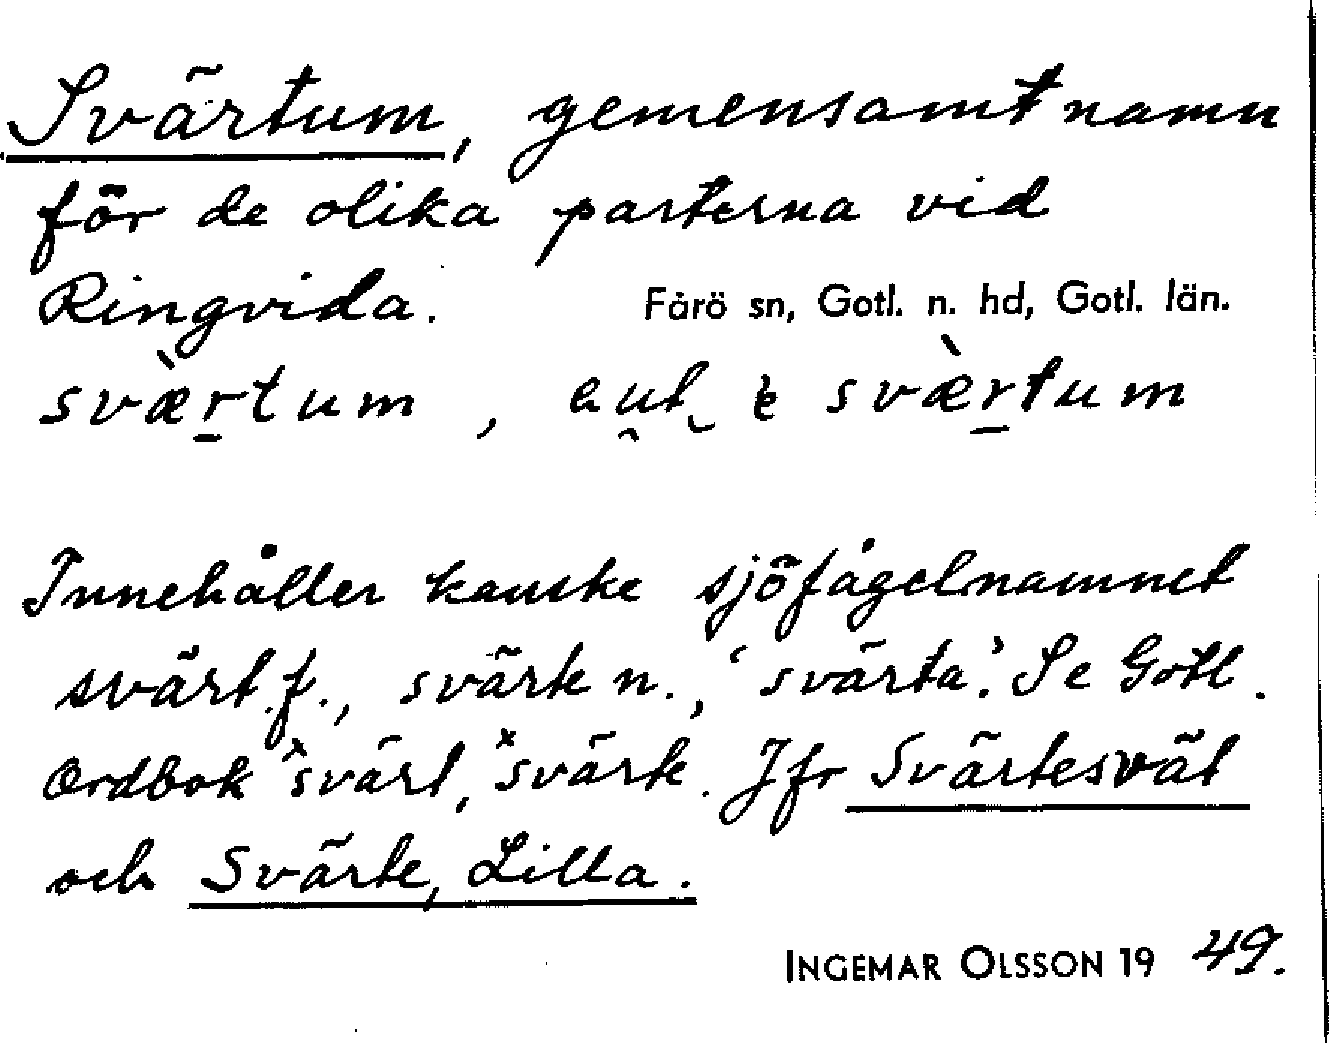 Svärtum, gemensamt namn
för de olika parterna vid
Ringvida. Fårö sn, Gotl. n. hd, Gotl. län.
svæ̀r̠tum, svæ̀r̠tum
Innehåller kanske sjöfågelnamnet
svärt f., svärte n., 'svärta'. Se Gotl.
Ordbok ˣsvärt, ˣsvärte. Jfr Svärtesvät
och Svärte, Lilla.
INGEMAR OLSSON 19 49.